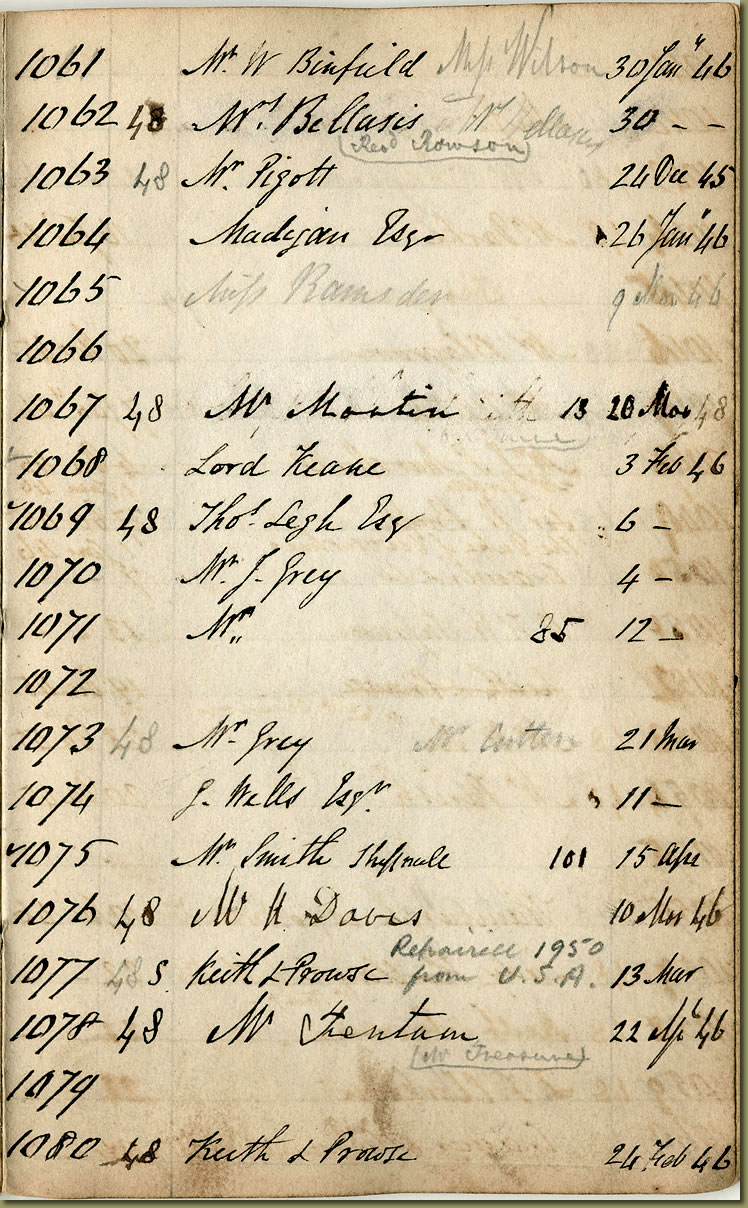 1061 Mr W Binfield Miss Wilson 30 Jany 46
1062 48 Mrs Bellasis 30 - -
(Revd Rowson)
1063 48 Mr Pigott 24 Dec 45
1064 Madigan Esqr 26 Jany 46
1065 Miss Ramsden 9 Mar 46
1066
1067 48 Mr Martin 13 20 Mar 48
1068 Lord Keane 3 Feb 46
1069 48 Thos. Legh Esqr 6 -
1070 Mr J. Grey 4 -
1071 Mr 85 12 -
1072
1073 48 Mr Grey Mr 21 Mar
1074 J. Walls Esqr 11 -
1075 Mr Smith 101 15 Apr
1076 48 Mr H Davis 10 Mar 46
Repaired 1950
1077 48 S Keith & Prowse from U.S.A. 13 Mar
1078 48 Mr Fentum 22 Apl 46
(Mr Treasure)
1079
1080 48 Keith & Prowse 24 Feb 46